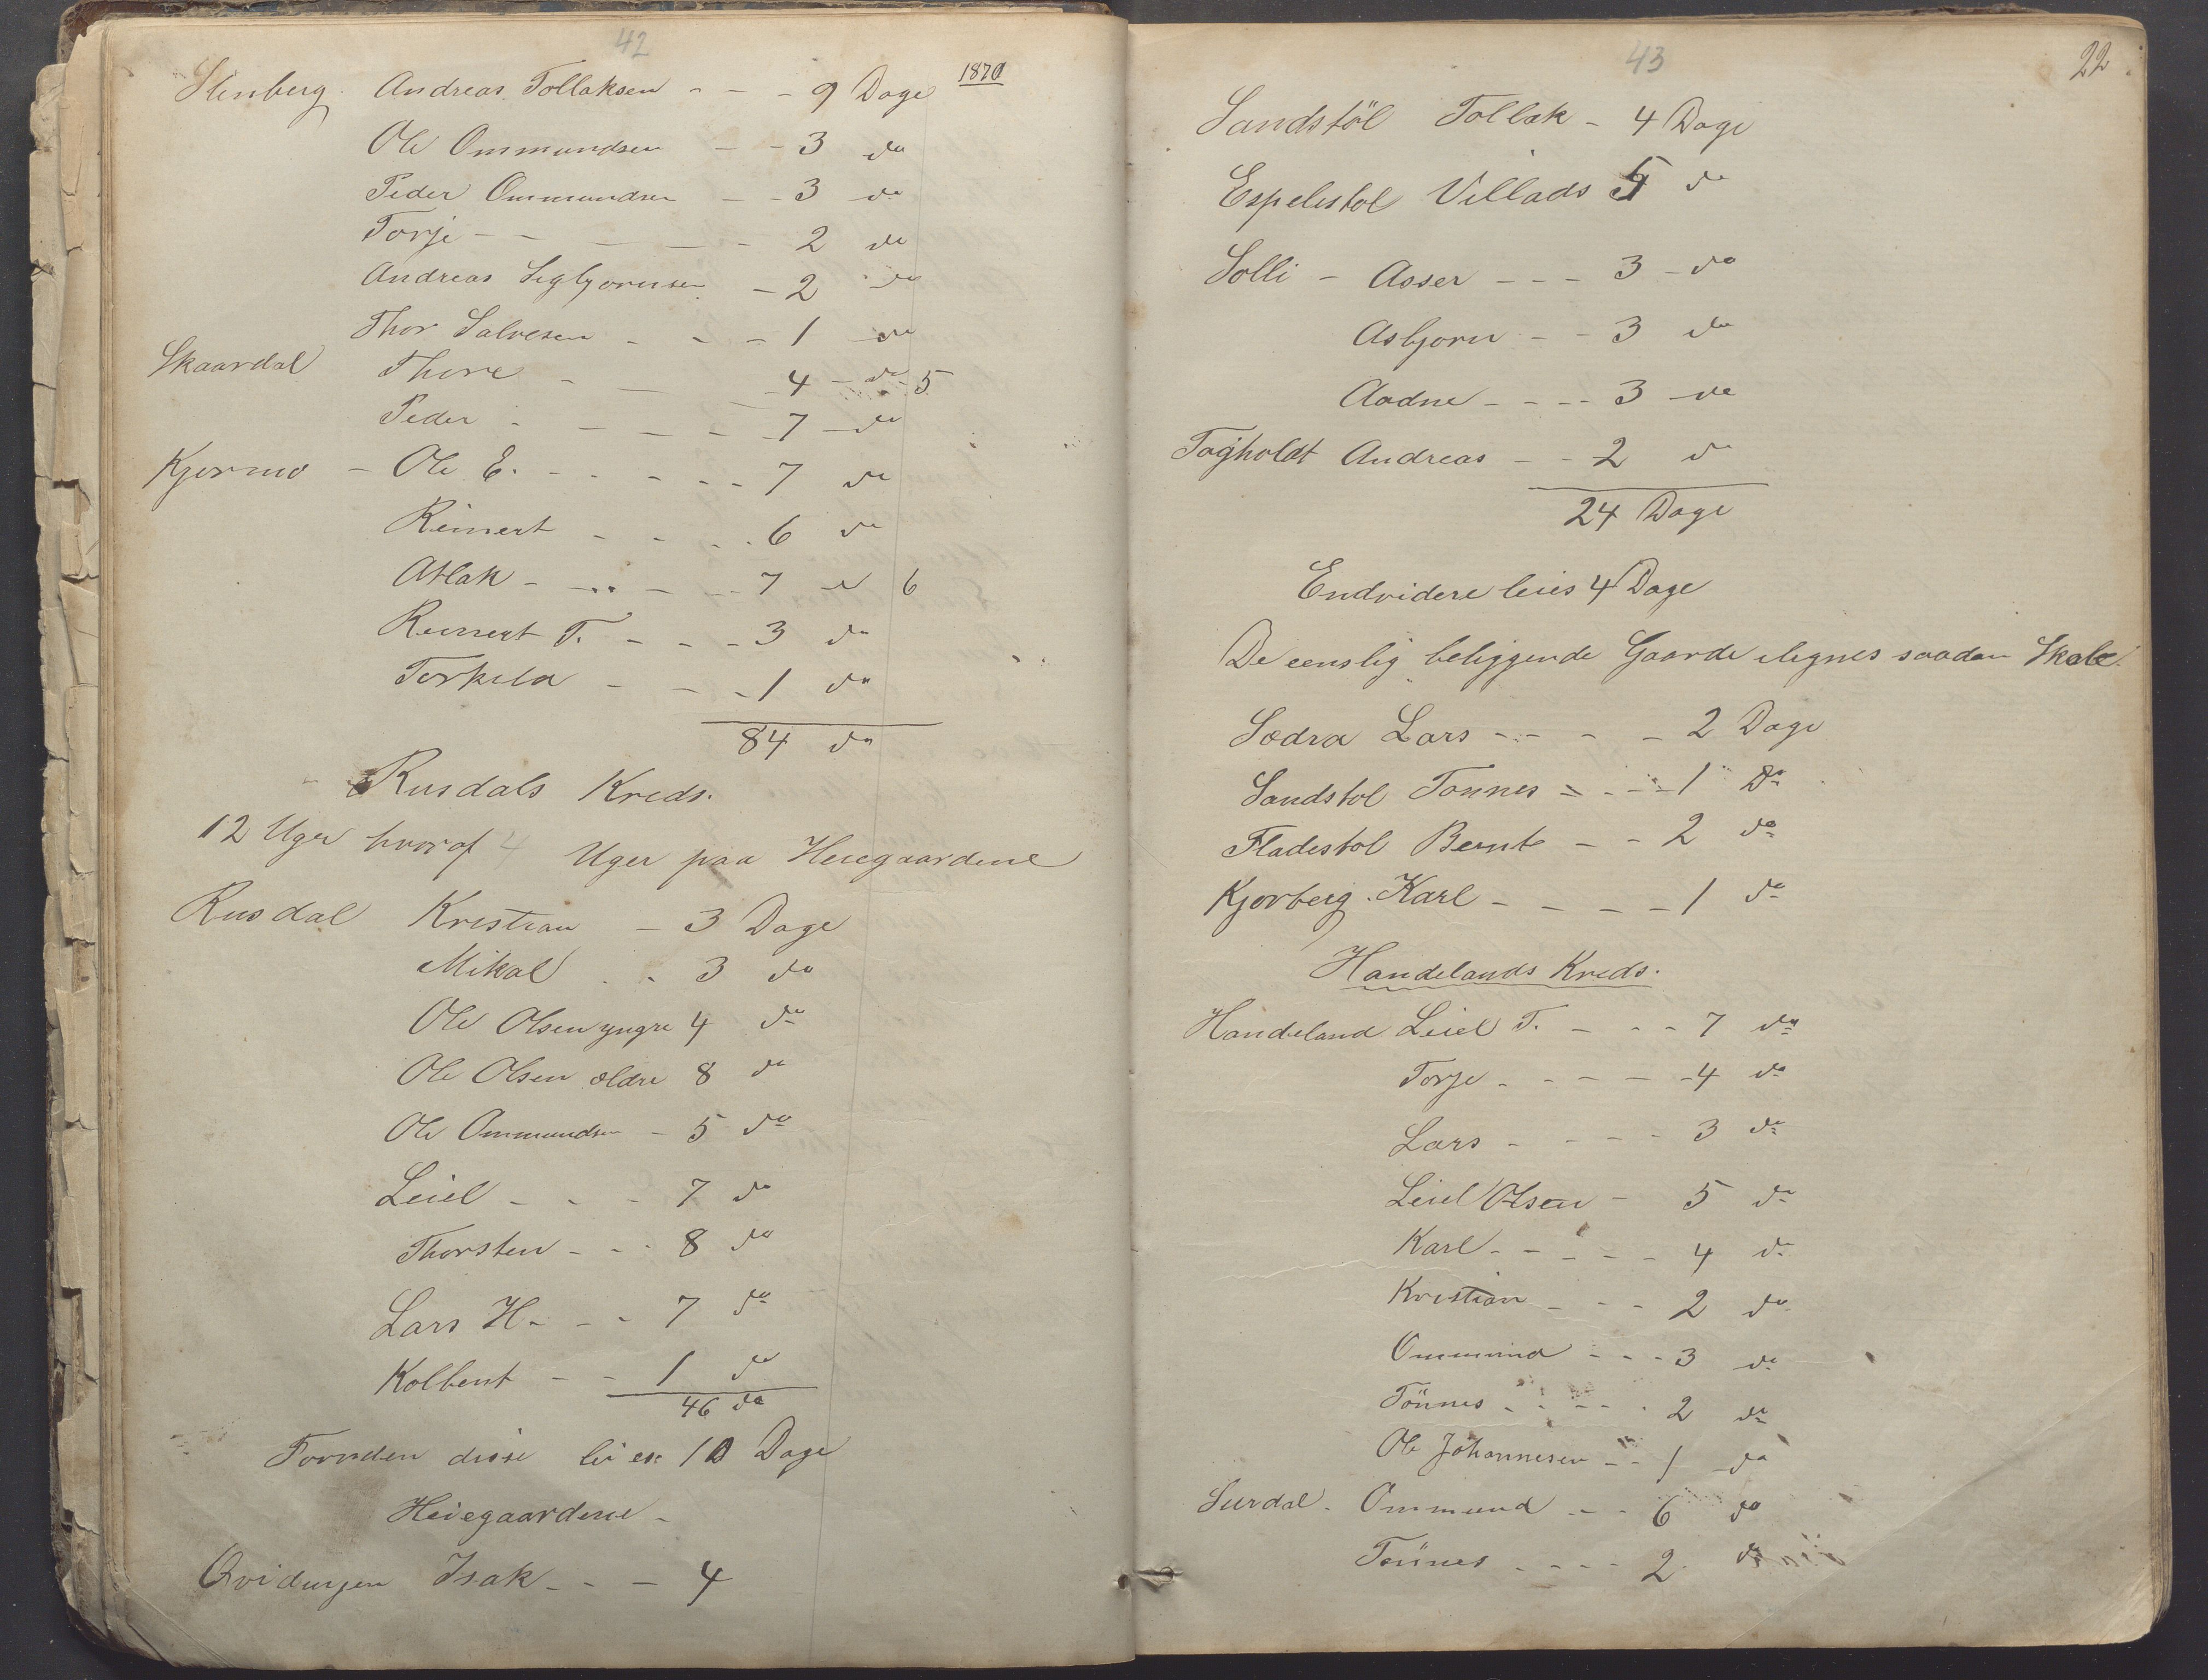 42
1870
Stenberg. Andreas Tollaksen - - - 9 Dage
Ole Ommundsen - - 3 do
Peder Ommundsen - - 3 do
Torje - - - - - 2 do
Andreas Sigbjornsen - 2 do
Thor Salvesen - - - 1 do
Skaardal Thore - - - 4 - do - 5
Peder - - - - 7 - do
Kjormo - Ole E. - - - - - 7 do
Reinert - - - - 6 do
Atlak - - - - 7 do 6
Reinert T. - - - 3 do
Torkild - - - 1 do
84 do
Rusdals Kreds.
12 Uger hvoraf 4 Uger paa Heiegaardene
Rusdal Kristian - 3 Dage
Mikal - - 3 do
Ole Olsen yngre 4 do
Ole Olsen ældre 8 do
Ole Ommundsen - 5 do
Leiel - - - 7 do
Thorsten - - - 8 do
Lars H. - - - 7 do
Kolbent - - 1 do
46 do
Foruden disse leies 10 Dage
Heiegaardene -
Qvidurgen Isak - - - 4
43
22.
Sandstöl Tollak - 4 Dage
Espelistol Villads 5 do
Solli - Asser - - - 3 - do
Asbjorn - - 3 do
Aadne - - - - 3 do
Tagholdt Andreas - - 2 do
24 Dage
Endvidere leies 4 Dage
De eenslig beliggende Gaarde ilignes saadan Skole.
Sædra Lars - - - - 2 Dage
Sandstol Tonnes - - - - 1 Do
Fladestol Bernt - - 2 do
Kjorberg. Karl - - - - 1 do
Handelands Kreds.
Handeland Leiel T. - - - 7 do
Torje - - - - - 4 do
Lars - - - - 3 do
Leiel Olsen - 5 do
Karl - - - - - 4 do
Kristian - - - 2 do
Ommund - - - 3 do
Tönnes - - - - - 2 do
Ole Johannesen - - 1 do
Surdal. Ommund - - - 6 do
Tönnes - - - - 2 do